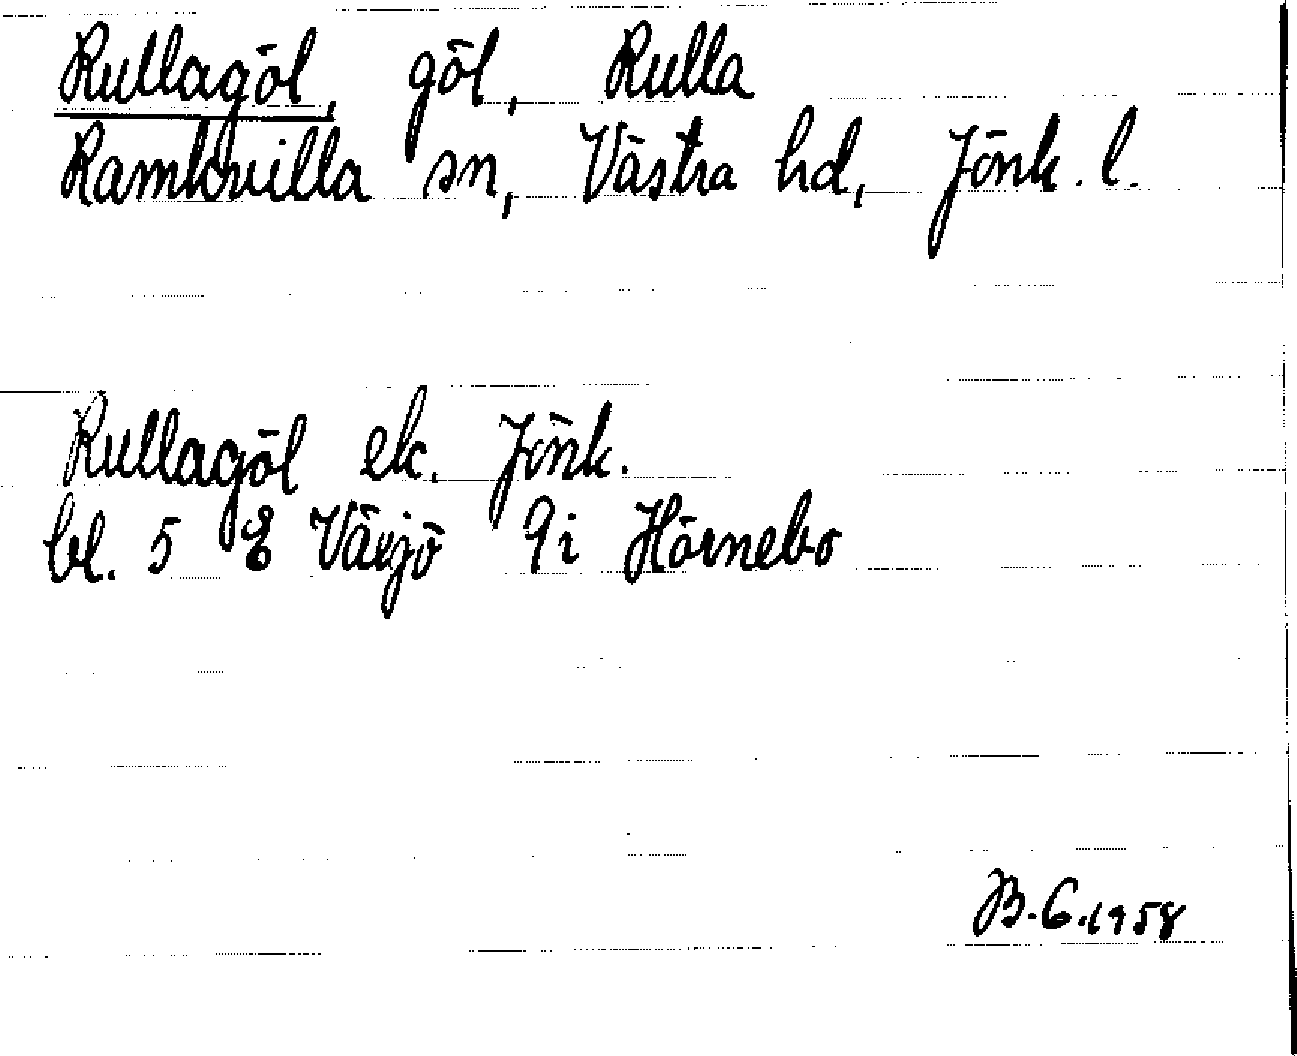 Rullagöl, göl, Rulla
Ramkvilla sn, Västra hd, Jönk. l.
Rullagöl ek. Jönk.
bl. 5 E Växjö 9i Hörnebo
B.G. 1958